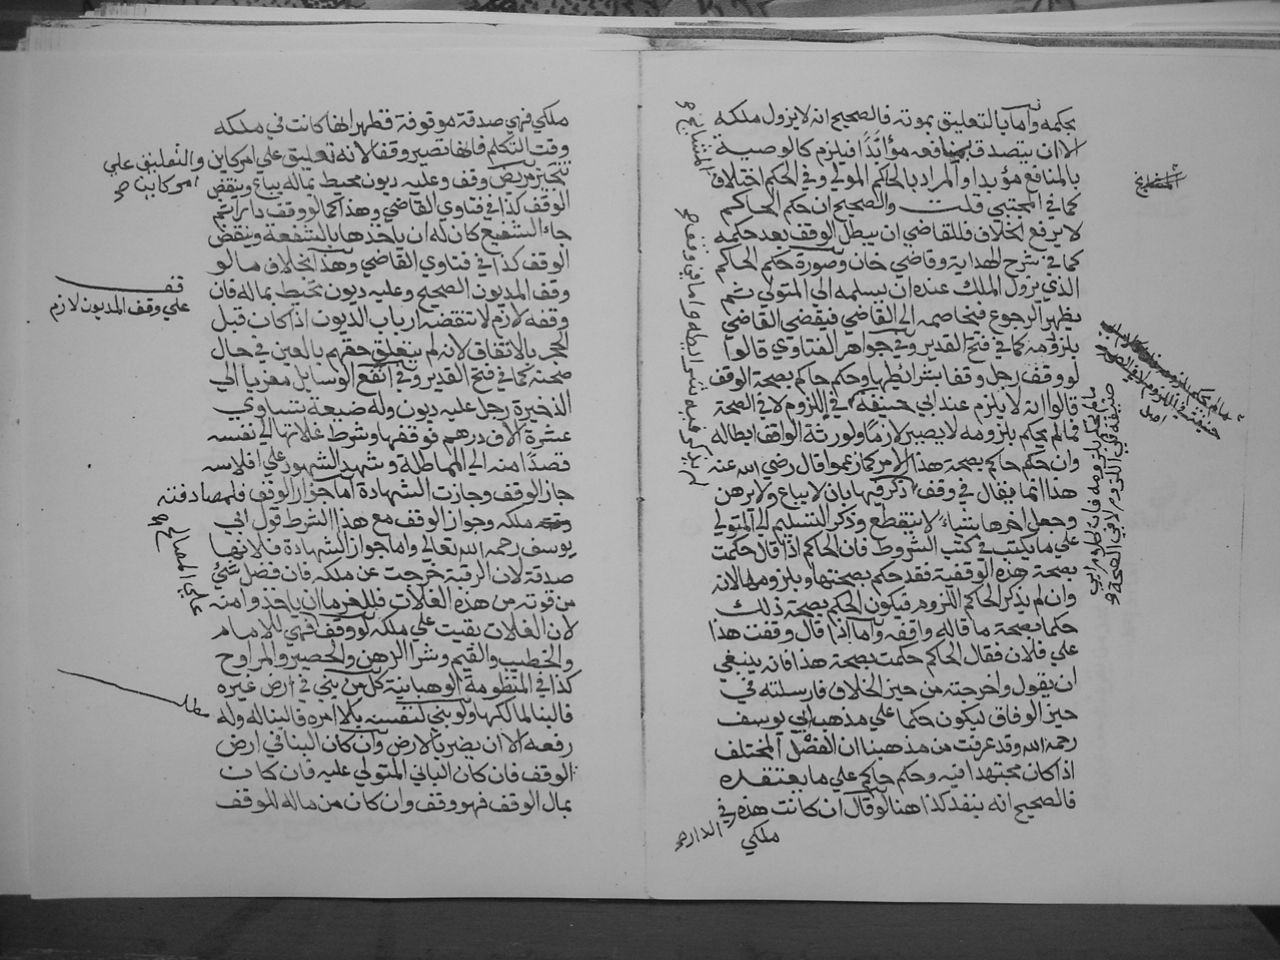 بحكمه وأما بالتعليق بموته فالصحيح انه لا يزول ملكه
الا ان يتصدق بمنافعه مؤبدًا فيلزم كالوصية
بالمنافع مؤبدا والمراد بالحاكم المولي وفي الحكم اختلاف
المشايخ صح
المشايخ
كما في المجتبي قلت والصحيح ان حكم الحاكم
لا يرفع الخلاف فللقاضي ان يبطل الوقف بعد حكمه
كما في شرح الهداية وقاضي خان وصورة حكم الحاكم
الذي يزول الملك عنده ان يسلمه الي المتولي ثم
يظهر الرجوع فيخاصمه الي القاضي فيقضي القاضي
بلزومه كما في فتح القدير وفي جواهر الفتاوي قالوا
لو وقف رجل وقفا بشرائطها وحكم حاكم بصحة الوقف
قالوا انه لا يلزم عند ابي حنيفة في اللزوم لا في الصحة
فما لم يحكم بلزومه لا يصير لازمًا ولورثة الواقف ابطاله
وان حكم حاكم بصحة هذا الامر كما زعموا قال رضي الله عنه
هذا انما يقال في وقف ذكر فيها بان لا يباع ولا يرهن
وجعل اخرها بشيء لا ينقطع وذكر التسليم الي المتولي
علي ما يكتب في كتب الشروط فان الحاكم اذا قال حكمت
بصحة هذه الوقفية فقد حكم بصحتها وبلزومها لانه
وان لم يذكر الحاكم اللزوم فيكون الحكم بصحة ذلك
حكما بصحة ما قاله واقفه وأما اذا قال وقفت هذا
علي فلان فقال الحاكم حكمت بصحة هذا فانه ينبغي
ان يقول واخرجته من حيز الخلاف فارسلته في
حيز الوفاق ليكون حكما علي مذهب ابي يوسف
رحمه الله وقد عرفت من مذهبنا ان الفصل المختلف
اذا كان مجتهدا فيه وحكم حاكم علي ما يعتقده
فالصحيح انه ينفذ كذا هنا لو قال ان كانت هذه في
الدار صح
ملكي
لم يذكر فيه شرايطه واما في وقف صح
ما لم يحكم بلزومه فان خلاف ابي
حنيفة في اللزوم لا في الصحة و
ملكي فهي صدقة موقوفة فظهر انها كانت في ملكه
وقت التكلم فانها تصير وقفا لانه تعليق علي امر كاين والتعليق علي
امر كاين صح
تنجيز مريض وقف وعليه ديون محيط بماله يباع وينقض
الوقف كذا في فتاوي القاضي وهذا كما لو وقف دارا ثم
جاء الشفيع كان له ان ياخذها بالشفعة وينقض
الوقف كذا في فتاوي القاضي وهذا بخلاف ما لو
قف
علي وقف المديون لازم
وقف المديون الصحيح وعليه ديون تحيط بماله فان
وقفه لازم لا تنقضه ارباب الديون اذا كان قبل
الحجر بالاتفاق لانه لم يتعلق حقهم بالعين في حال
صحته كما في فتح القدير وفي انفع الوسايل معزيا الي
الذخيرة رجل عليه ديون وله ضيعة تساوي
عشرة الاف درهم فوقفها وشرط غلاتها الي نفسه
قصدًا منه الي المماطلة وشهد الشهود علي افلاسه
جاز الوقف وجازت الشهادة اما جواز الوقف فلمصادفته
ملكه وجواز الوقف مع هذا الشرط قول ابي
يوسف رحمه الله تعالي واما جواز الشهادة فلانها
صدقة لان الرقبة خرجت عن ملكه فان فضل شيء
من قوته من هذه الغلات فللغرما ان ياخذوا منه
لان الغلات بقيت علي ملكه لو وقف فهي للامام
علي المصالح صح
والخطيب والقيم وشرا الدهن والحصير والمراوح
كذا في المنظومة الوهبانية كل من بني في ارض غيره
مطلب
فالبنا لمالكها ولو بني لنفسه بلا امره فالبنا له وله
رفعه الا ان يضر بالارض وان كان البنا في ارض
الوقف فان كان الباني المتولي عليه فان كان
بمال الوقف فهو وقف وان كان من ماله للوقف